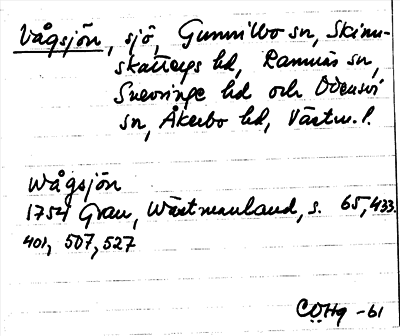 Vågsjön, sjö, Gunnilbo sn, Skinn-
skattebgs hd, Ramnäs sn,
Snevringe hd och Odensvi
sn, Åkerbo hd, Västm. l.
Wågsjön
1754 Grau, Wästmanland, s. 65, 433.
401, 507, 527
COHg -61